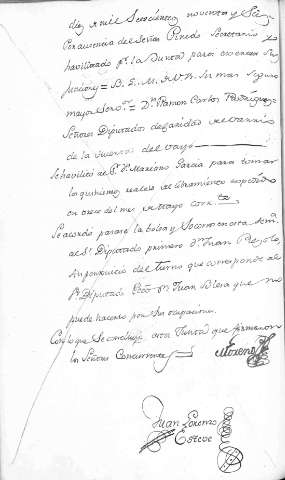 diez y mil Setecientos noventa y Seis
Por ausencia del Señor Pinedo Secretario
havilitado pr. la Junta para exercer sus
funciones = B. L. M. de V. S. su mas seguro
mayor Servor. = Dn. Ramon Carlos Rodriguez =
Señores Diputados de Caridad del Varrio
de la
Se havilitó al Sr. Dn. Mariano Garcia para tomar
los quinientos reales de libramiento expedido
en trece del mes de Mayo corrte.
Se acordó pasase la bolsa y Socorros en esta sema.
al Sr. Diputado primero Dn. Juan
sin perjuicio del turno que corresponde al
Sr. Diputado Ecco. Dn. Juan Blesa que no
puede hacerlo por sus ocupaciones.
Con lo que se concluyó esta Junta que firmaron
los Señores Concurrentes
Moreno
Juan Lorenzo
Esteve